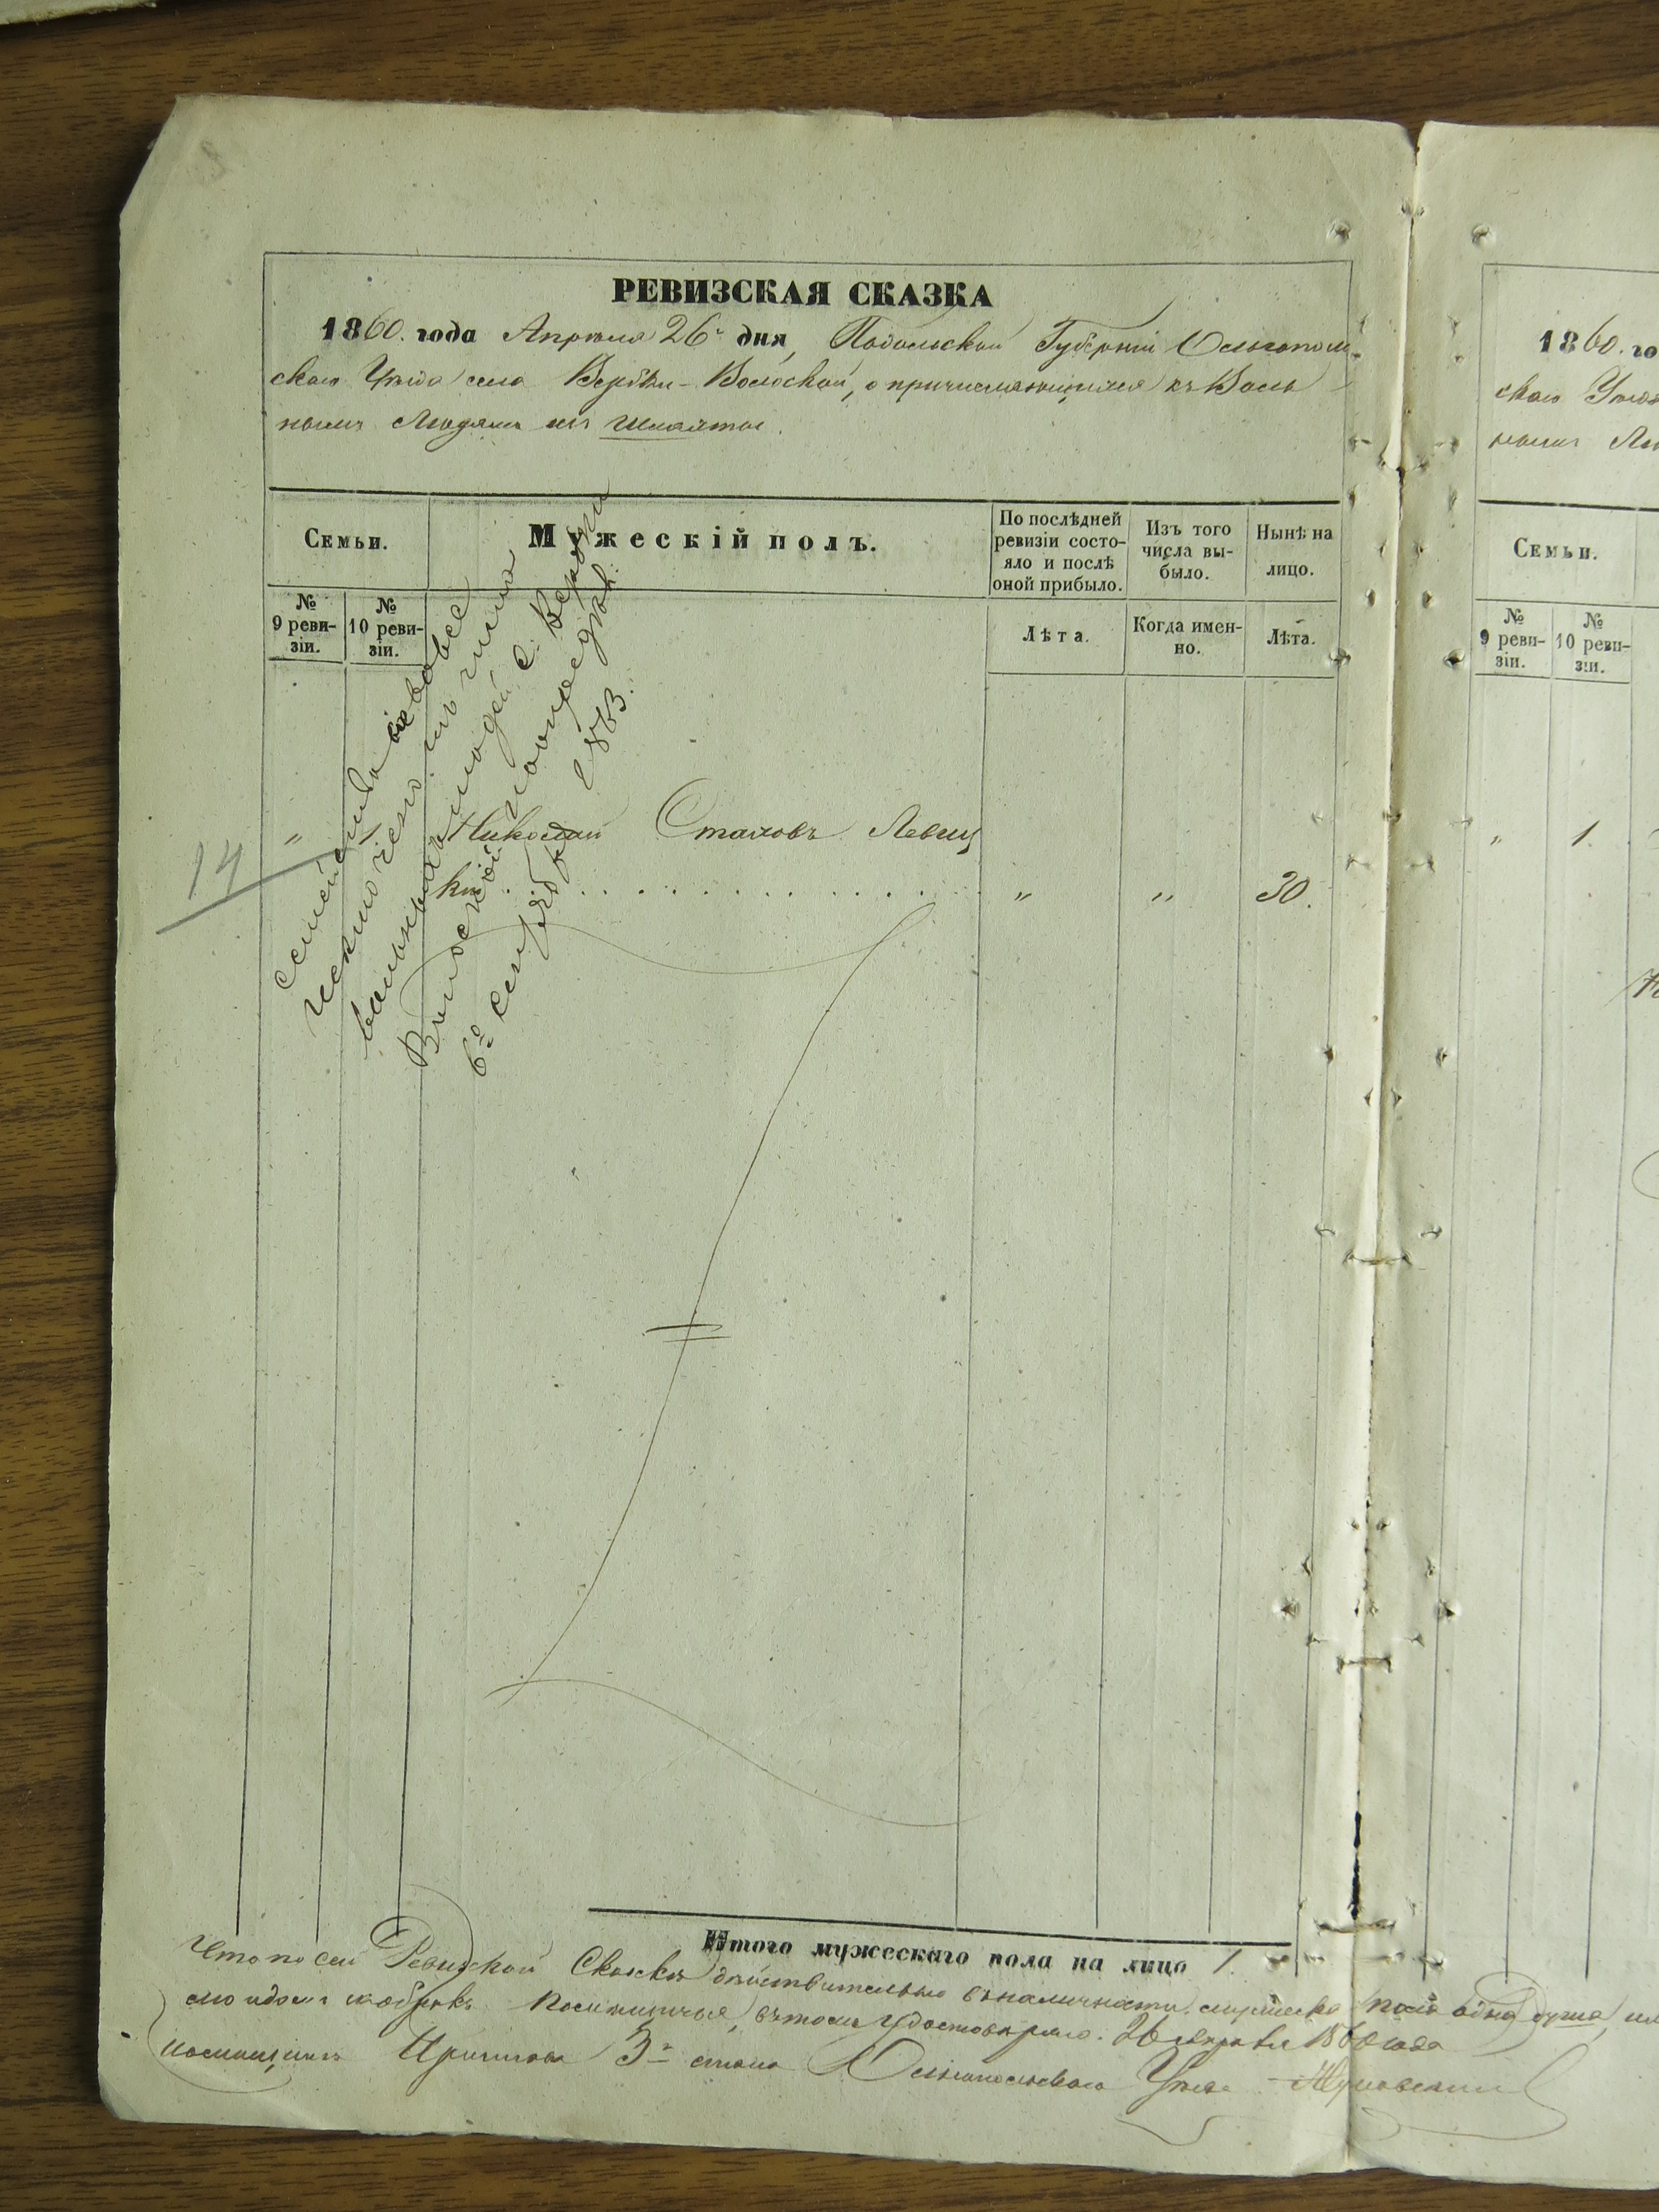 РЕВИЗСКАЯ СКАЗКА
1860. года Апрѣля 26го дня, Подольской Губерніи Ольгополь-
скаго Уѣзда села Вербки-Волоской, о причисляющихся къ Воль-
нымъ Людямъ изъ шляхты.
Семьи.
Мужескій полъ.
По послѣдней ревизіи состо-яло и послѣ оной прибыло.
Изъ того числа вы-было.
Нынѣ на лицо.
№ 9 реви-зіи.
№ 10 реви-зіи.
Лѣта.
Когда имен-но.
Лѣта.
семейство
исключено изъ числа
вольныхъ людей с. Вербки
Волоской
6го сентября 1863.
14
" 1. Николай Левиц
кій . . . . . . . . . . . . " " 30.
Итого мужескаго пола на лицо 1.
Что по сей Ревизской Сказкѣ дѣйствительно въ наличности мужеска пола одна душа,
въ томъ удостовѣряю. 26 1860 года
Пристава 3го стана Ольгопольскаго Уѣзда
1860. го
скаго Уѣзд
нымъ Лю
Семьи.
№ 9 реви-зіи.
№ 10 реви-зіи.
" 1.